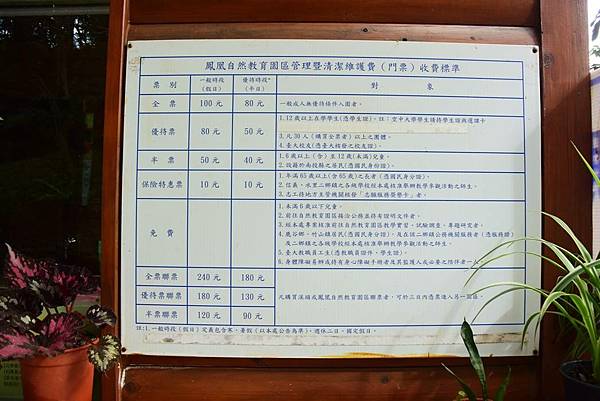 鳳凰自然教育園區管理暨清潔維護費（門票）收費標準
票 別 一般時段（假日） 優待時段*（平日） 對 象
全 票 100元 80元 一般成人無優待條件入園者。
優待票 80元 50元
1.12歲以上在學學生(憑學生證)。註：空中大學學生請持學生證與選課卡
3.凡30人（購買全票者）以上之團體。
4.臺大校友(憑臺大核發之校友證)。
半 票 50元 40元
1.6歲以上（含）至12歲(未滿)兒童。
2.設籍於南投縣之居民(憑國民身份證)。
保險特惠票 10元 10元
1.年滿65歲以上(含65歲)之長者（憑國民身份證）。
2.信義、水里二鄉鎮之各級學校經本處核准舉辦教學參觀活動之師生。
3.志工持地方主管機關核發「志願服務榮譽卡」者。
免 費
1.未滿6歲以下兒童。
2.前往自然教育園區接洽公務並持有證明文件者。
3.經本處專案核准前往自然教育園區教學實習、試驗調查、專題研究者。
4.鹿谷鄉、竹山鎮居民(憑國民身份證)，及在該二鄉鎮公務機關服務者（憑服務證）
及二鄉鎮之各級學校經本處核准舉辦教學參觀活動之師生。
5.臺大教職員工生(憑教職員證件、學生證)。
6.身體障礙者領有身心障礙手冊者及其監護人或必要之陪伴者一人
全票聯票 240元 180元
優待票聯票 180元 130元 凡購買溪頭或鳳凰自然教育園區聯票者，可於三日內憑票進入另一園區。
半票聯票 120元 90元
註:1.一般時段（假日）定義包含寒、暑假（以本處公告為準）、週休二日、國定假日。